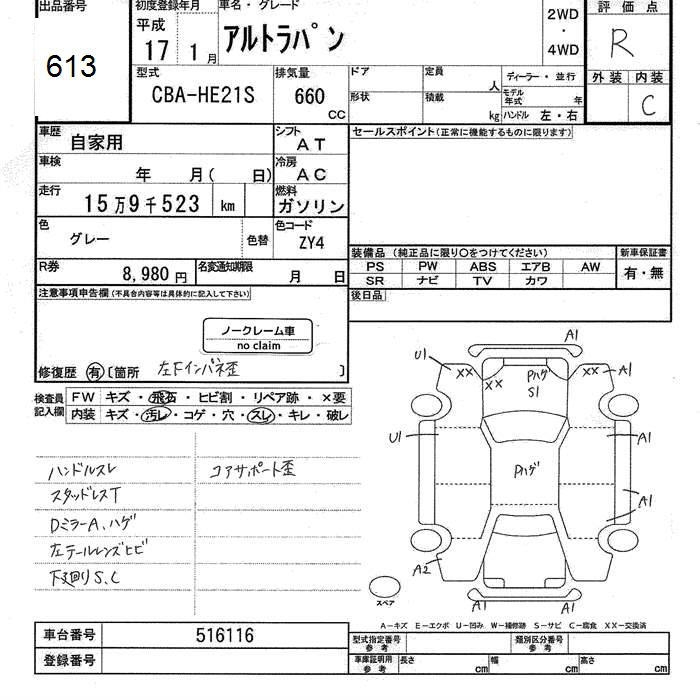 出品番号 初度登録年月 車名・グレード 評価点
613
平成
17 1月
アルトラパン
2WD
・
4WD
R
外装 内装
C
型式 排気量 ドア 定員 人 ディーラー・並行
CBA-HE21S 660 CC
形状 積載 kg
モデル年式 年
ハンドル 左・右
車歴 自家用 シフト AT セールスポイント(正常に機能するものに限ります)
車検 年 月( 日) 冷房 AC
走行 15万9千523 km 燃料 ガソリン
色 グレー 色替 色コード ZY4
装備品 (純正品に限り○をつけてください) 新車保証書
PS PW ABS エアB AW 有・無
SR ナビ TV カワ
R券 8,980円 名変通知期限 月 日
注意事項申告欄(不具合内容等は具体的に記入して下さい) 後日品
ノークレーム車
no claim
修復歴 有 〔箇所 左下インパネ歪 〕
検査員記入欄 FW キズ・飛石・ヒビ割・リペア跡・×要
内装 キズ・汚レ・コゲ・穴・スレ・キレ・破レ
ハンドルスレ コアサポート歪
スタッドレスT
DミラーA、ハゲ
左テールレンズヒビ
下廻りS、C
A1
U1 XX XX Pハゲ S1 XX A1
U1 A1
Pハゲ
A1
A2
スペア
A1 A1
A−キズ E−エクボ U−凹み W−補修跡 S−サビ C−腐食 XX−交換済
車台番号 516116 型式指定番号 参考 類別区分番号 参考
登録番号 車庫証明用 参考 長さ cm 幅 cm 高さ cm